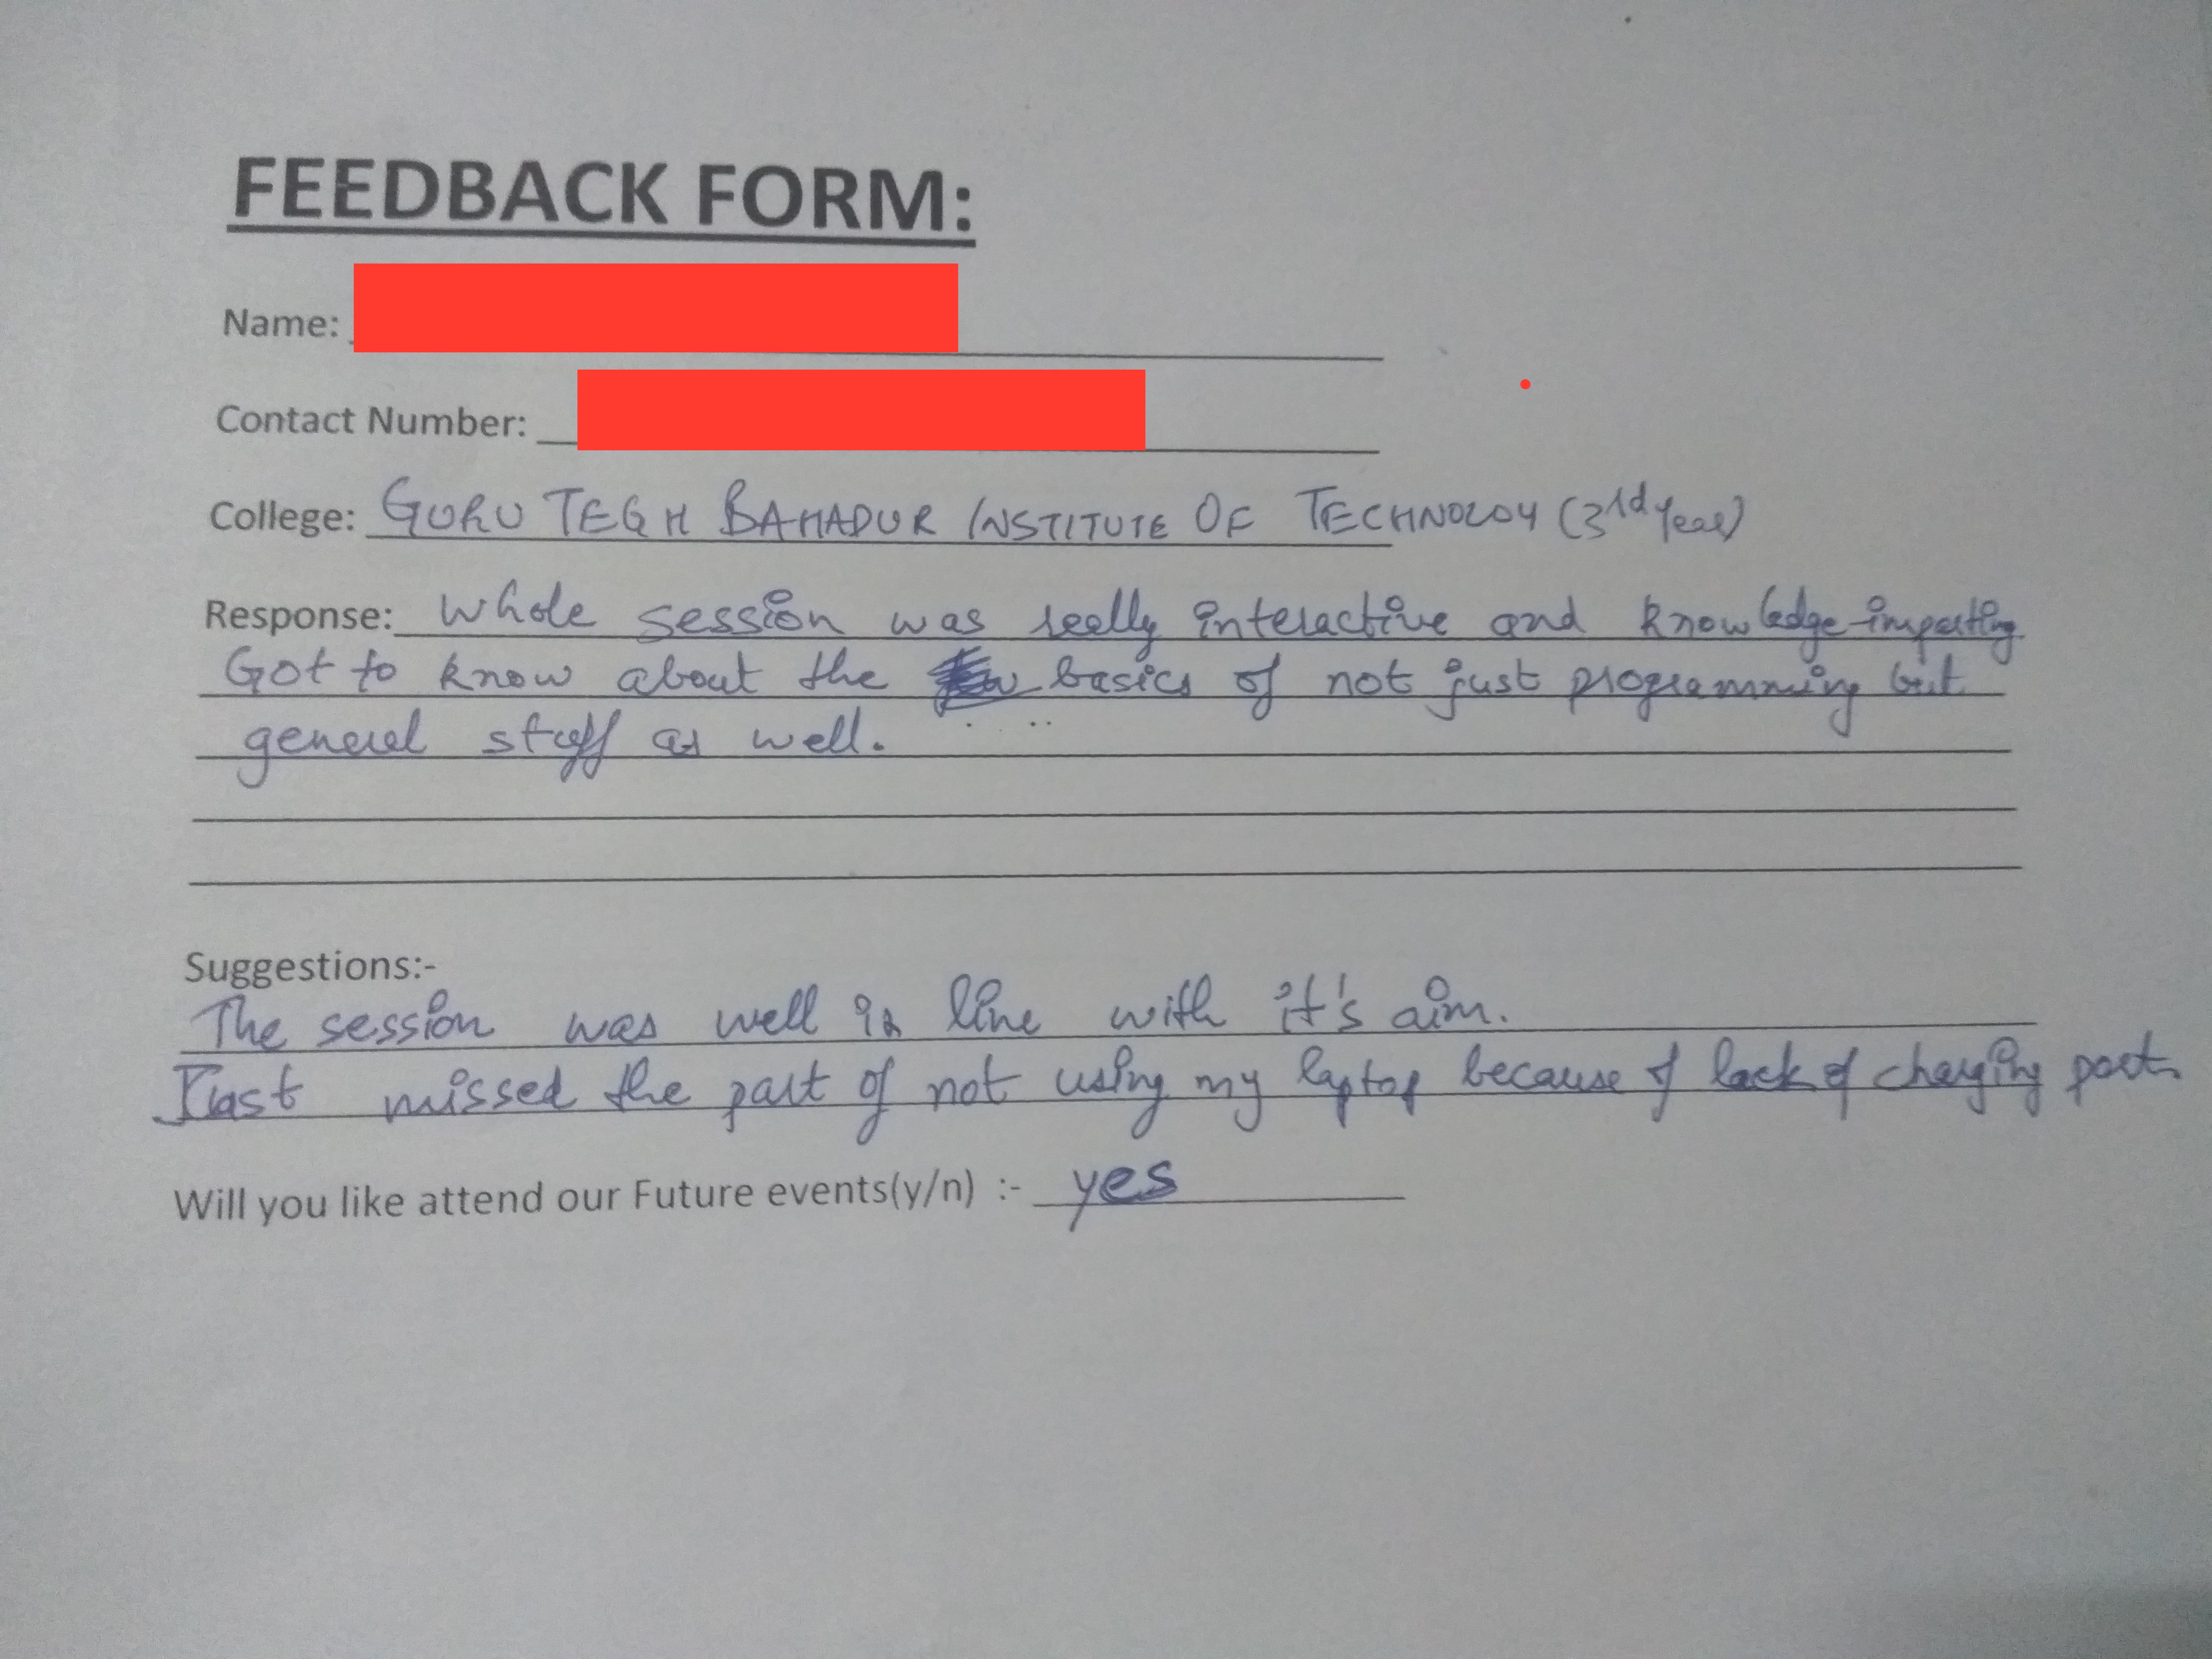 FEEDBACK FORM:
Name:
Contact Number:
College: GURU TEGH BAHADUR INSTITUTE OF TECHNOLOY (3rd Year)
Response: Whole session was really interactive and knowledge-imparting
Got to know about the basics of not just programming but
general stuff as well.
Suggestions:-
The session was well in line with it's aim.
Just missed the part of not using my laptop because of lack of charging port.
Will you like attend our Future events(y/n) :- yes